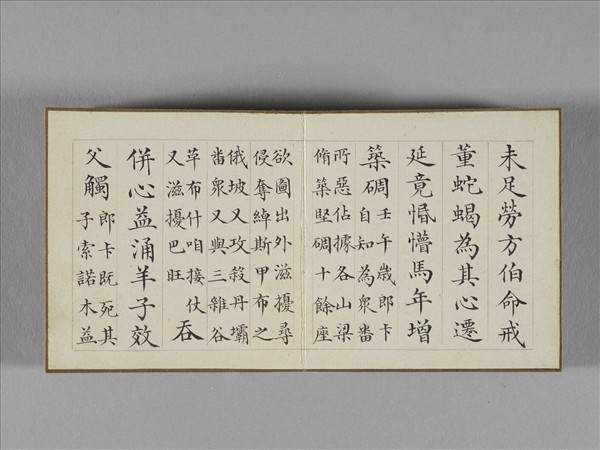 未足勞方伯命戒
董蛇蝎為其心遷
延竟惛懵馬年增
築碉壬午歲郎卡
自知為衆畨
所惡佔據各山梁
脩築堅碉十餘座
欲圖出外滋擾尋
侵奪綽斯甲布之
俄坡又攻殺丹壩
畨衆又與三雜谷
草布什咱接仗
又滋擾巴旺吞
併心益涌羊子效
父觸郎卡既死其
子索諾木益